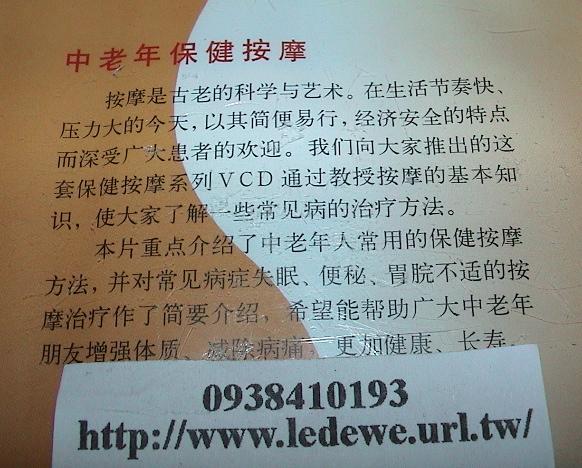 中老年保健按摩
按摩是古老的科学与艺术。在生活节奏快、
压力大的今天,以其简便易行,经济安全的特点
而深受广大患者的欢迎。我们向大家推出的这
套保健按摩系列VCD通过教授按摩的基本知
识,使大家了解一些常见病的治疗方法。
本片重点介绍了中老年人常用的保健按摩
方法,并对常见病症失眠、便秘、胃脘不适的按
摩治疗作了简要介绍,希望能帮助广大中老年
朋友增强体质、减除病痛,更加健康、长寿。
0938410193
http://www.ledewe.url.tw/